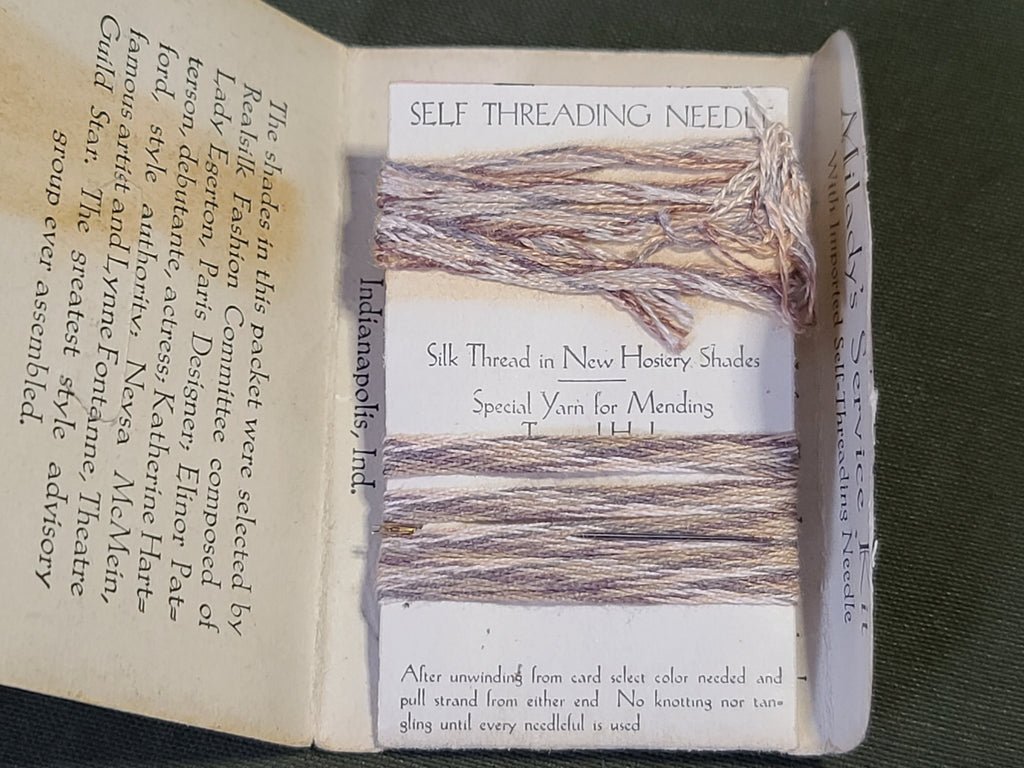 The shades in this packet were selected by
Realsilk Fashion Committee composed of
Lady Egerton, Paris Designer; Elinor Pat=
terson, debutante, actress; Katherine Hart=
ford, style authority; Neysa McMein,
famous artist and Lynne Fontanne, Theatre
Guild Star. The greatest style advisory
group ever assembled.
Indianapolis, Ind.
SELF THREADING NEEDL
Silk Thread in New Hosiery Shades
Special Yarn for Mending
After unwinding from card select color needed and
pull strand from either end No knotting nor tan=
gling until every needleful is used
Milady's Service Kit
With Imported Self-Threading Needle